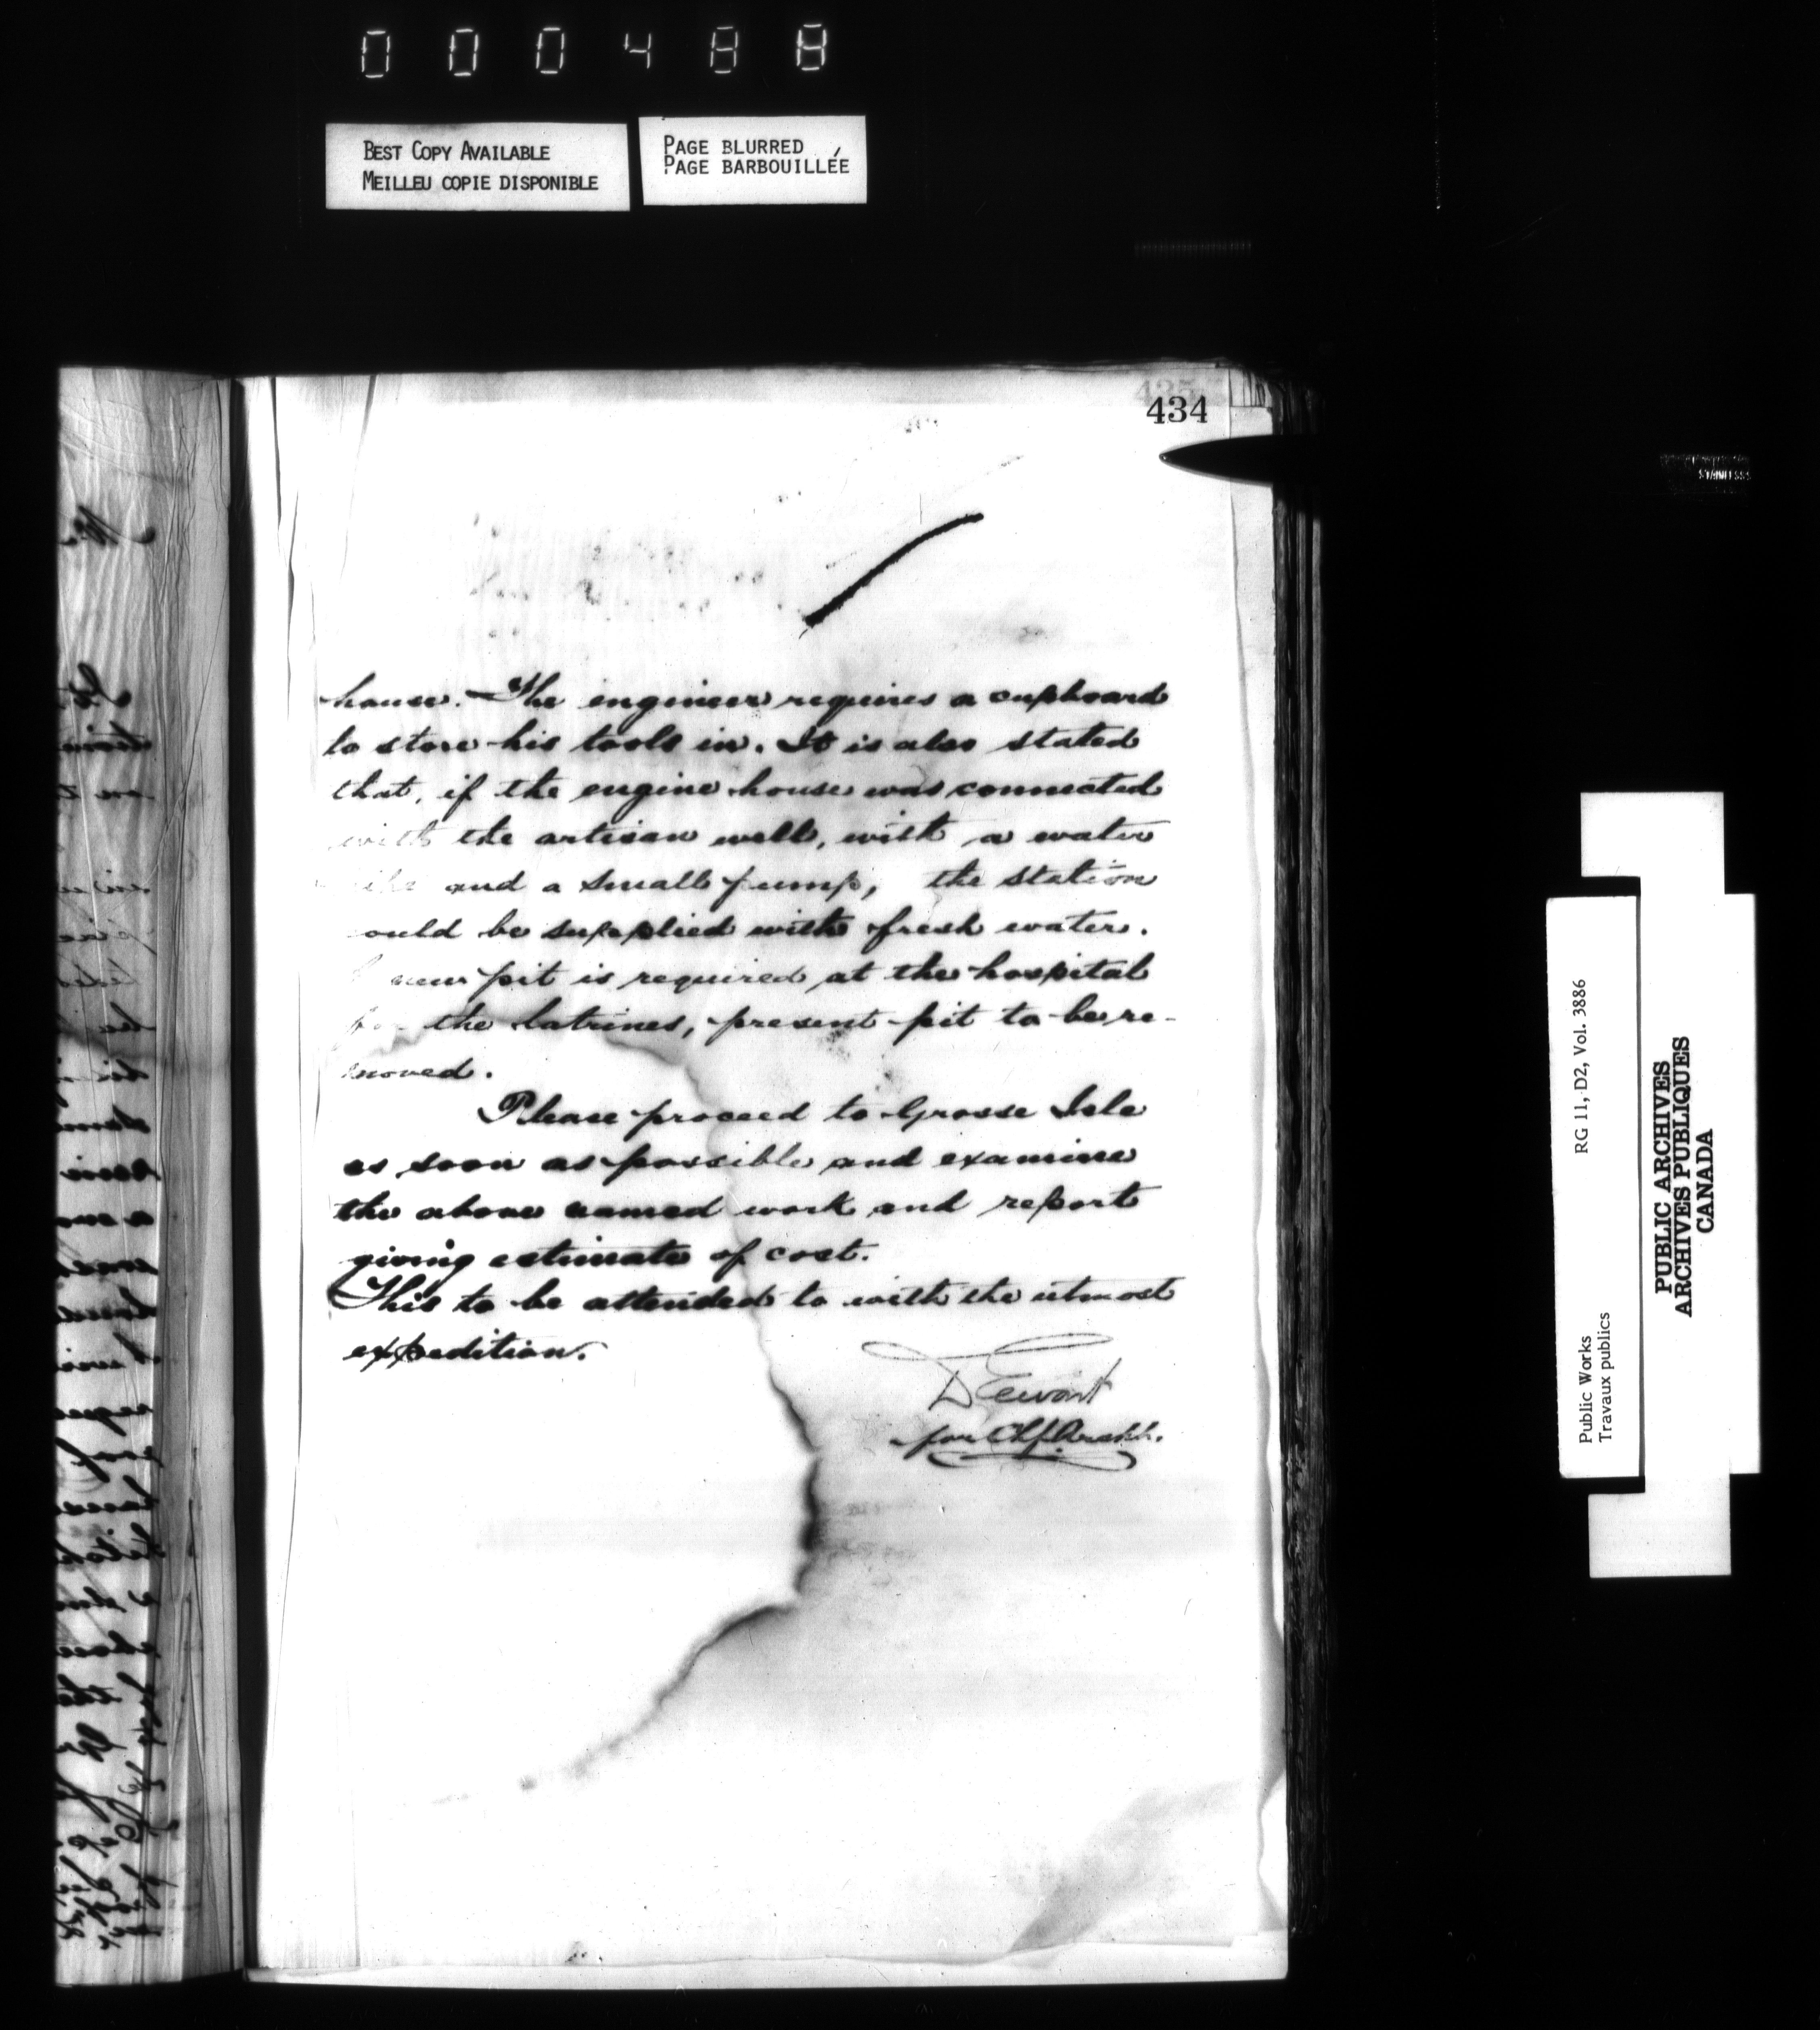 000488
BEST COPY AVAILABLE
MEILLEU COPIE DISPONIBLE
PAGE BLURRED
PAGE BARBOUILLÉE
434
house. The engineer requires a cupboard
to store his tools in. It is also stated
that, if the engine house was connected
with the artisan well, with a water
and a small pump, the station
ould be supplied with fresh water.
new pit is required at the hospital
for the latrines, present pit to be re-
moved.
Please proceed to Grosse Isle
as soon as possible and examine
the above named work and report
giving estimate of cost.
This to be attended to with the utmost
expedition.
D Ewart
for Chf. Archt.
STAINLESS
Public Works
Travaux publics
RG 11, D2, Vol. 3886
PUBLIC ARCHIVES
ARCHIVES PUBLIQUES
CANADA